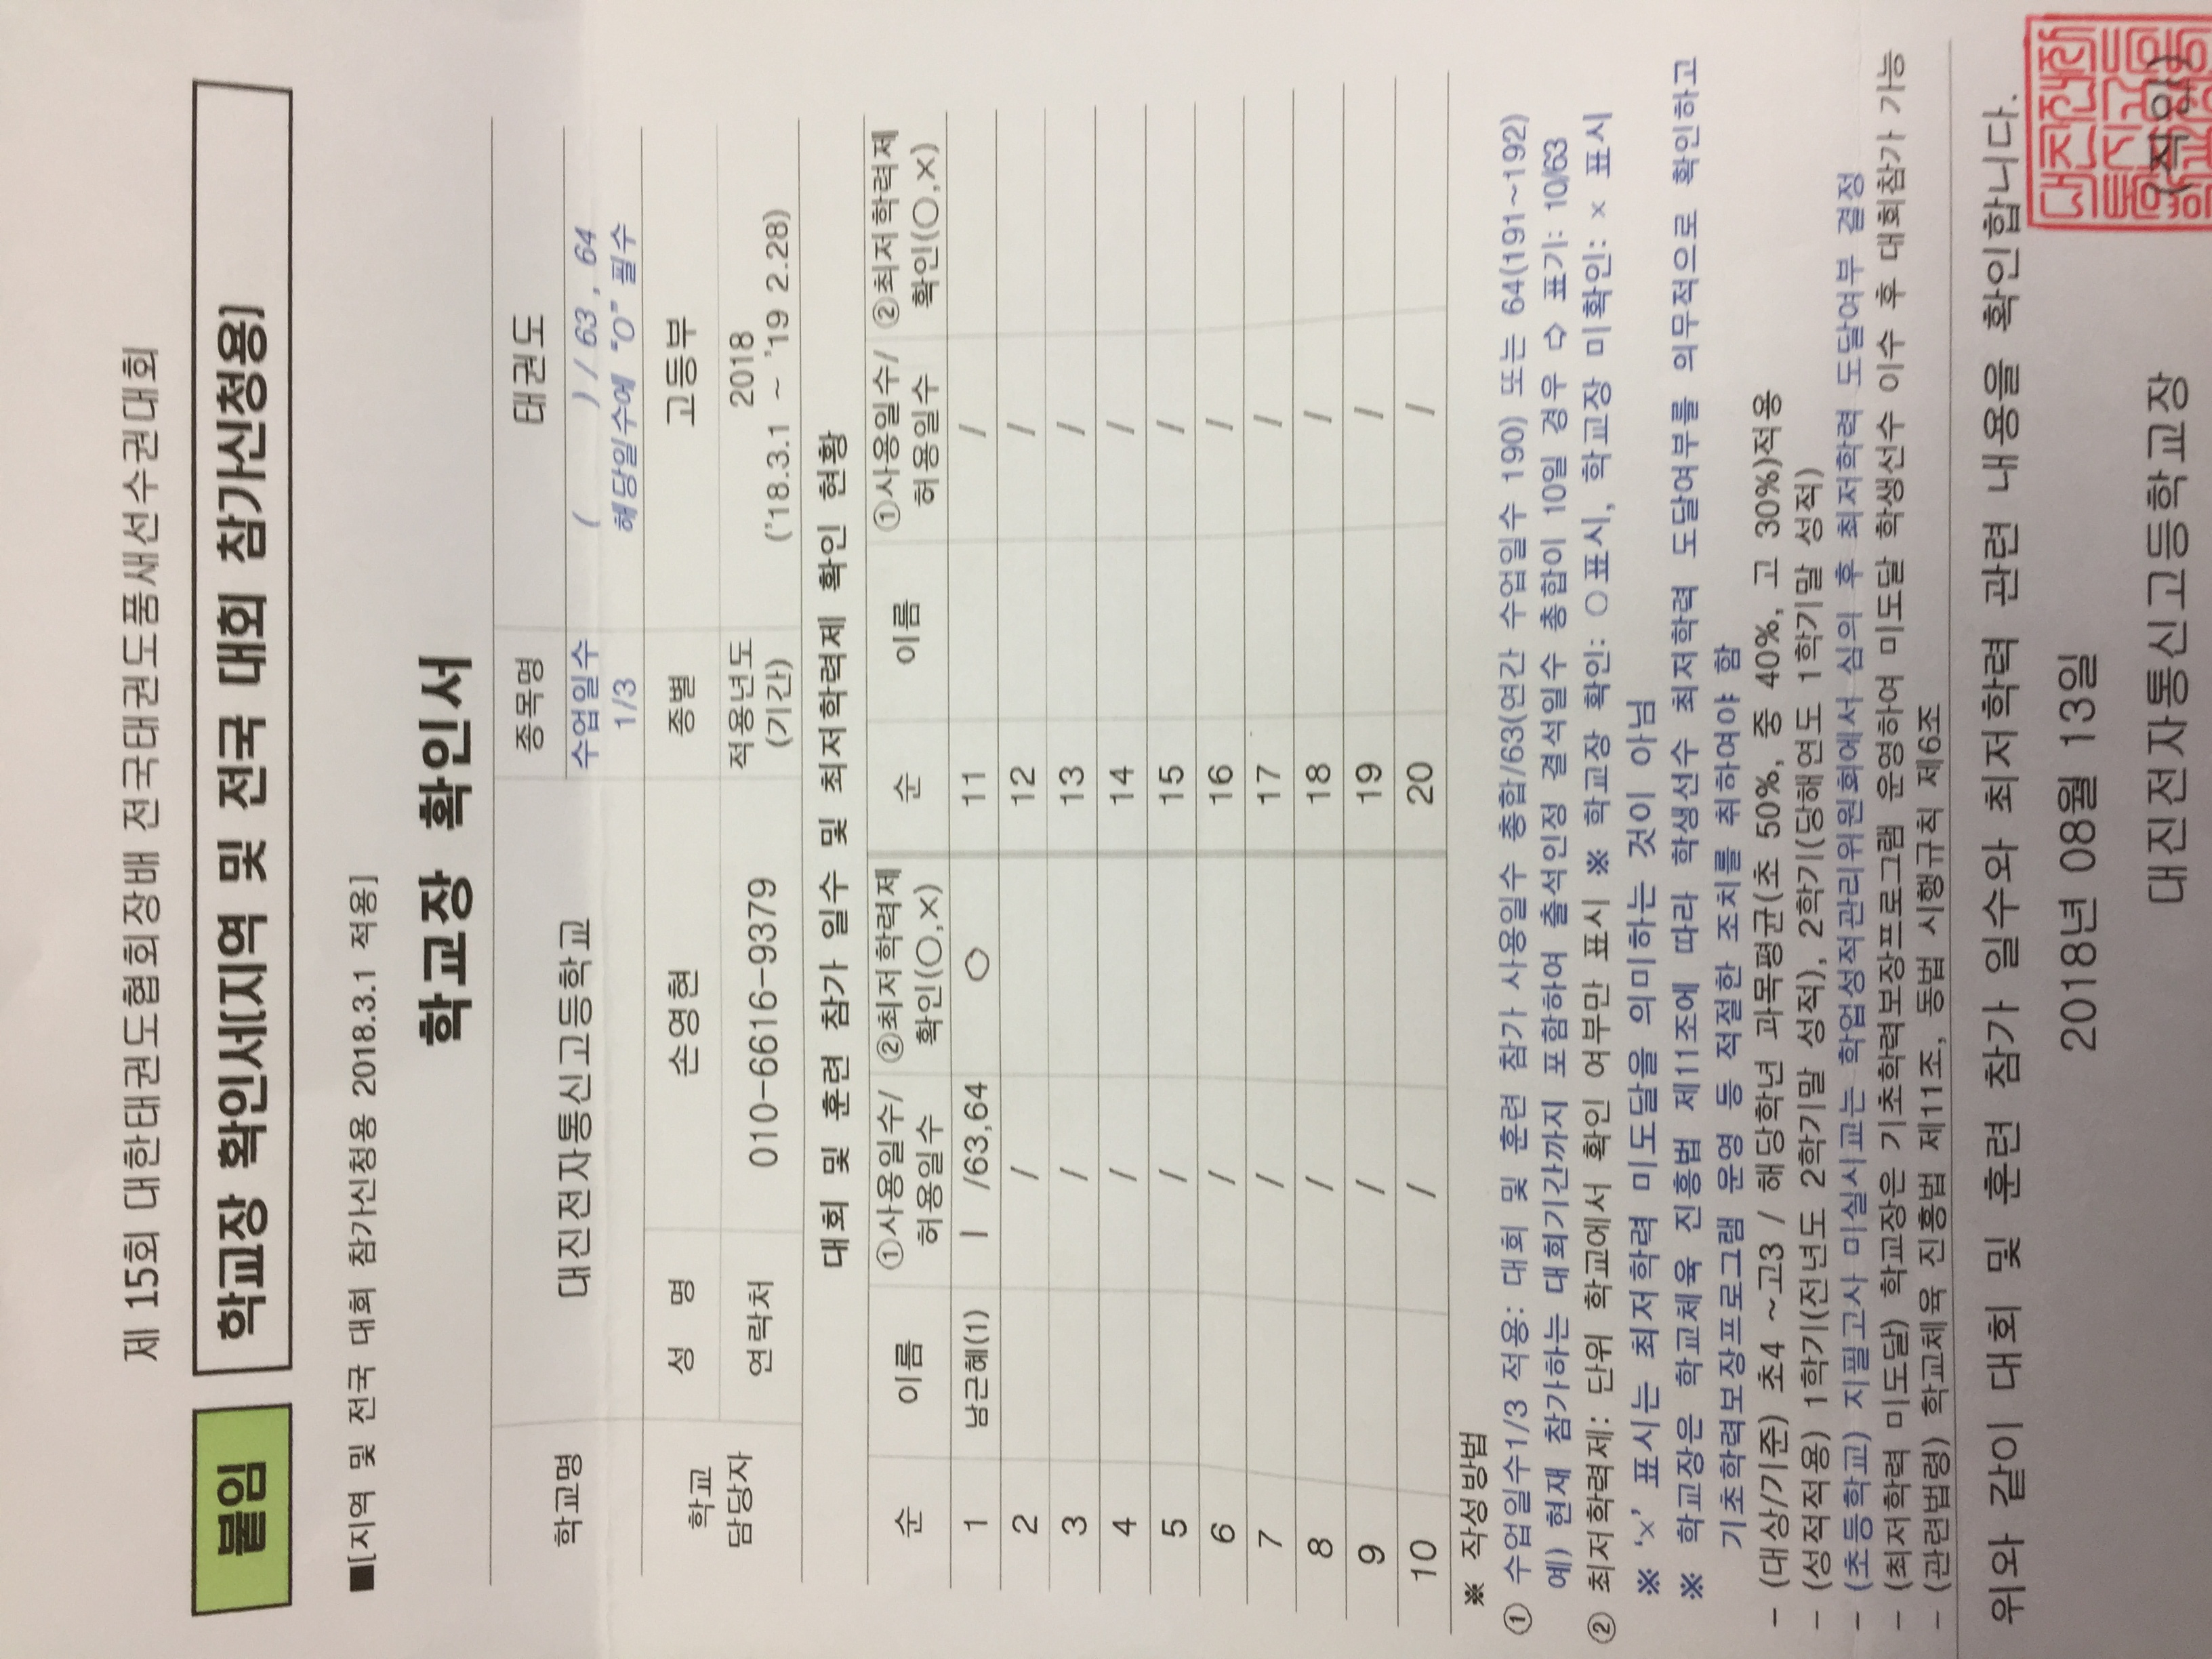 제 15회 대한태권도협회장배 전국태권도품새선수권대회
붙임 학교장 확인서[지역 및 전국 대회 참가신청용]
■[지역 및 전국 대회 참가신청용 2018.3.1 적용]
학교장 확인서
학교명 대진전자통신고등학교 종목명 태권도
수업일수 1/3 ( ) / 63 , 64 해당일수에 "O" 필수
학교 담당자 성 명 손영현 종별 고등부
연락처 010-6616-9379 적용년도 (기간) 2018 ('18.3.1 ~ '19 2.28)
대회 및 훈련 참가 일수 및 최저학력제 확인 현황
순 이름 ①사용일수/ 허용일수 ②최저학력제 확인(○,×) 순 이름 ①사용일수/ 허용일수 ②최저학력제 확인(○,×)
1 남근혜(1) 1 /63,64 ○ 11 /
2 / 12 /
3 / 13 /
4 / 14 /
5 / 15 /
6 / 16 /
7 / 17 /
8 / 18 /
9 / 19 /
10 / 20 /
※ 작성방법
① 수업일수1/3 적용: 대회 및 훈련 참가 사용일수 총합/63(연간 수업일수 190) 또는 64(191~192)
예) 현재 참가하는 대회기간까지 포함하여 출석인정 결석일수 총합이 10일 경우 ⇨ 표기: 10/63
② 최저학력제: 단위 학교에서 확인 여부만 표시 ※ 학교장 확인: ○표시, 학교장 미확인: × 표시
※ '×' 표시는 최저학력 미도달을 의미하는 것이 아님
※ 학교장은 학교체육 진흥법 제11조에 따라 학생선수 최저학력 도달여부를 의무적으로 확인하고
기초학력보장프로그램 운영 등 적절한 조치를 취하여야 함
- (대상/기준) 초4 ~고3 / 해당학년 과목평균(초 50%, 중 40%, 고 30%)적용
- (성적적용) 1학기(전년도 2학기말 성적), 2학기(당해연도 1학기말 성적)
- (초등학교) 지필고사 미실시교는 학업성적관리위원회에서 심의 후 최저학력 도달여부 결정
- (최저학력 미도달) 학교장은 기초학력보장프로그램 운영하여 미도달 학생선수 이수 후 대회참가 가능
- (관련법령) 학교체육 진흥법 제11조, 동법 시행규칙 제6조
위와 같이 대회 및 훈련 참가 일수와 최저학력 관련 내용을 확인합니다.
2018년 08월 13일
대진전자통신고등학교장 (직인)